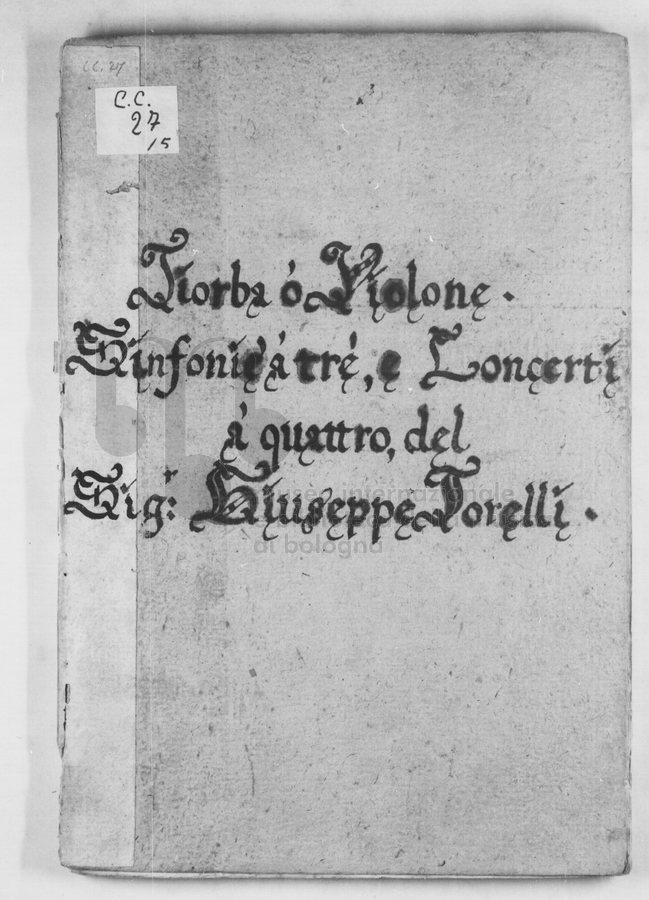 CC. 27
C.C.
27
15
Tiorba ó Violone.
Sinfonie à trè, e Concerti
à quattro, del
Sig.r Giuseppe Torelli.
internazionale
di bologna